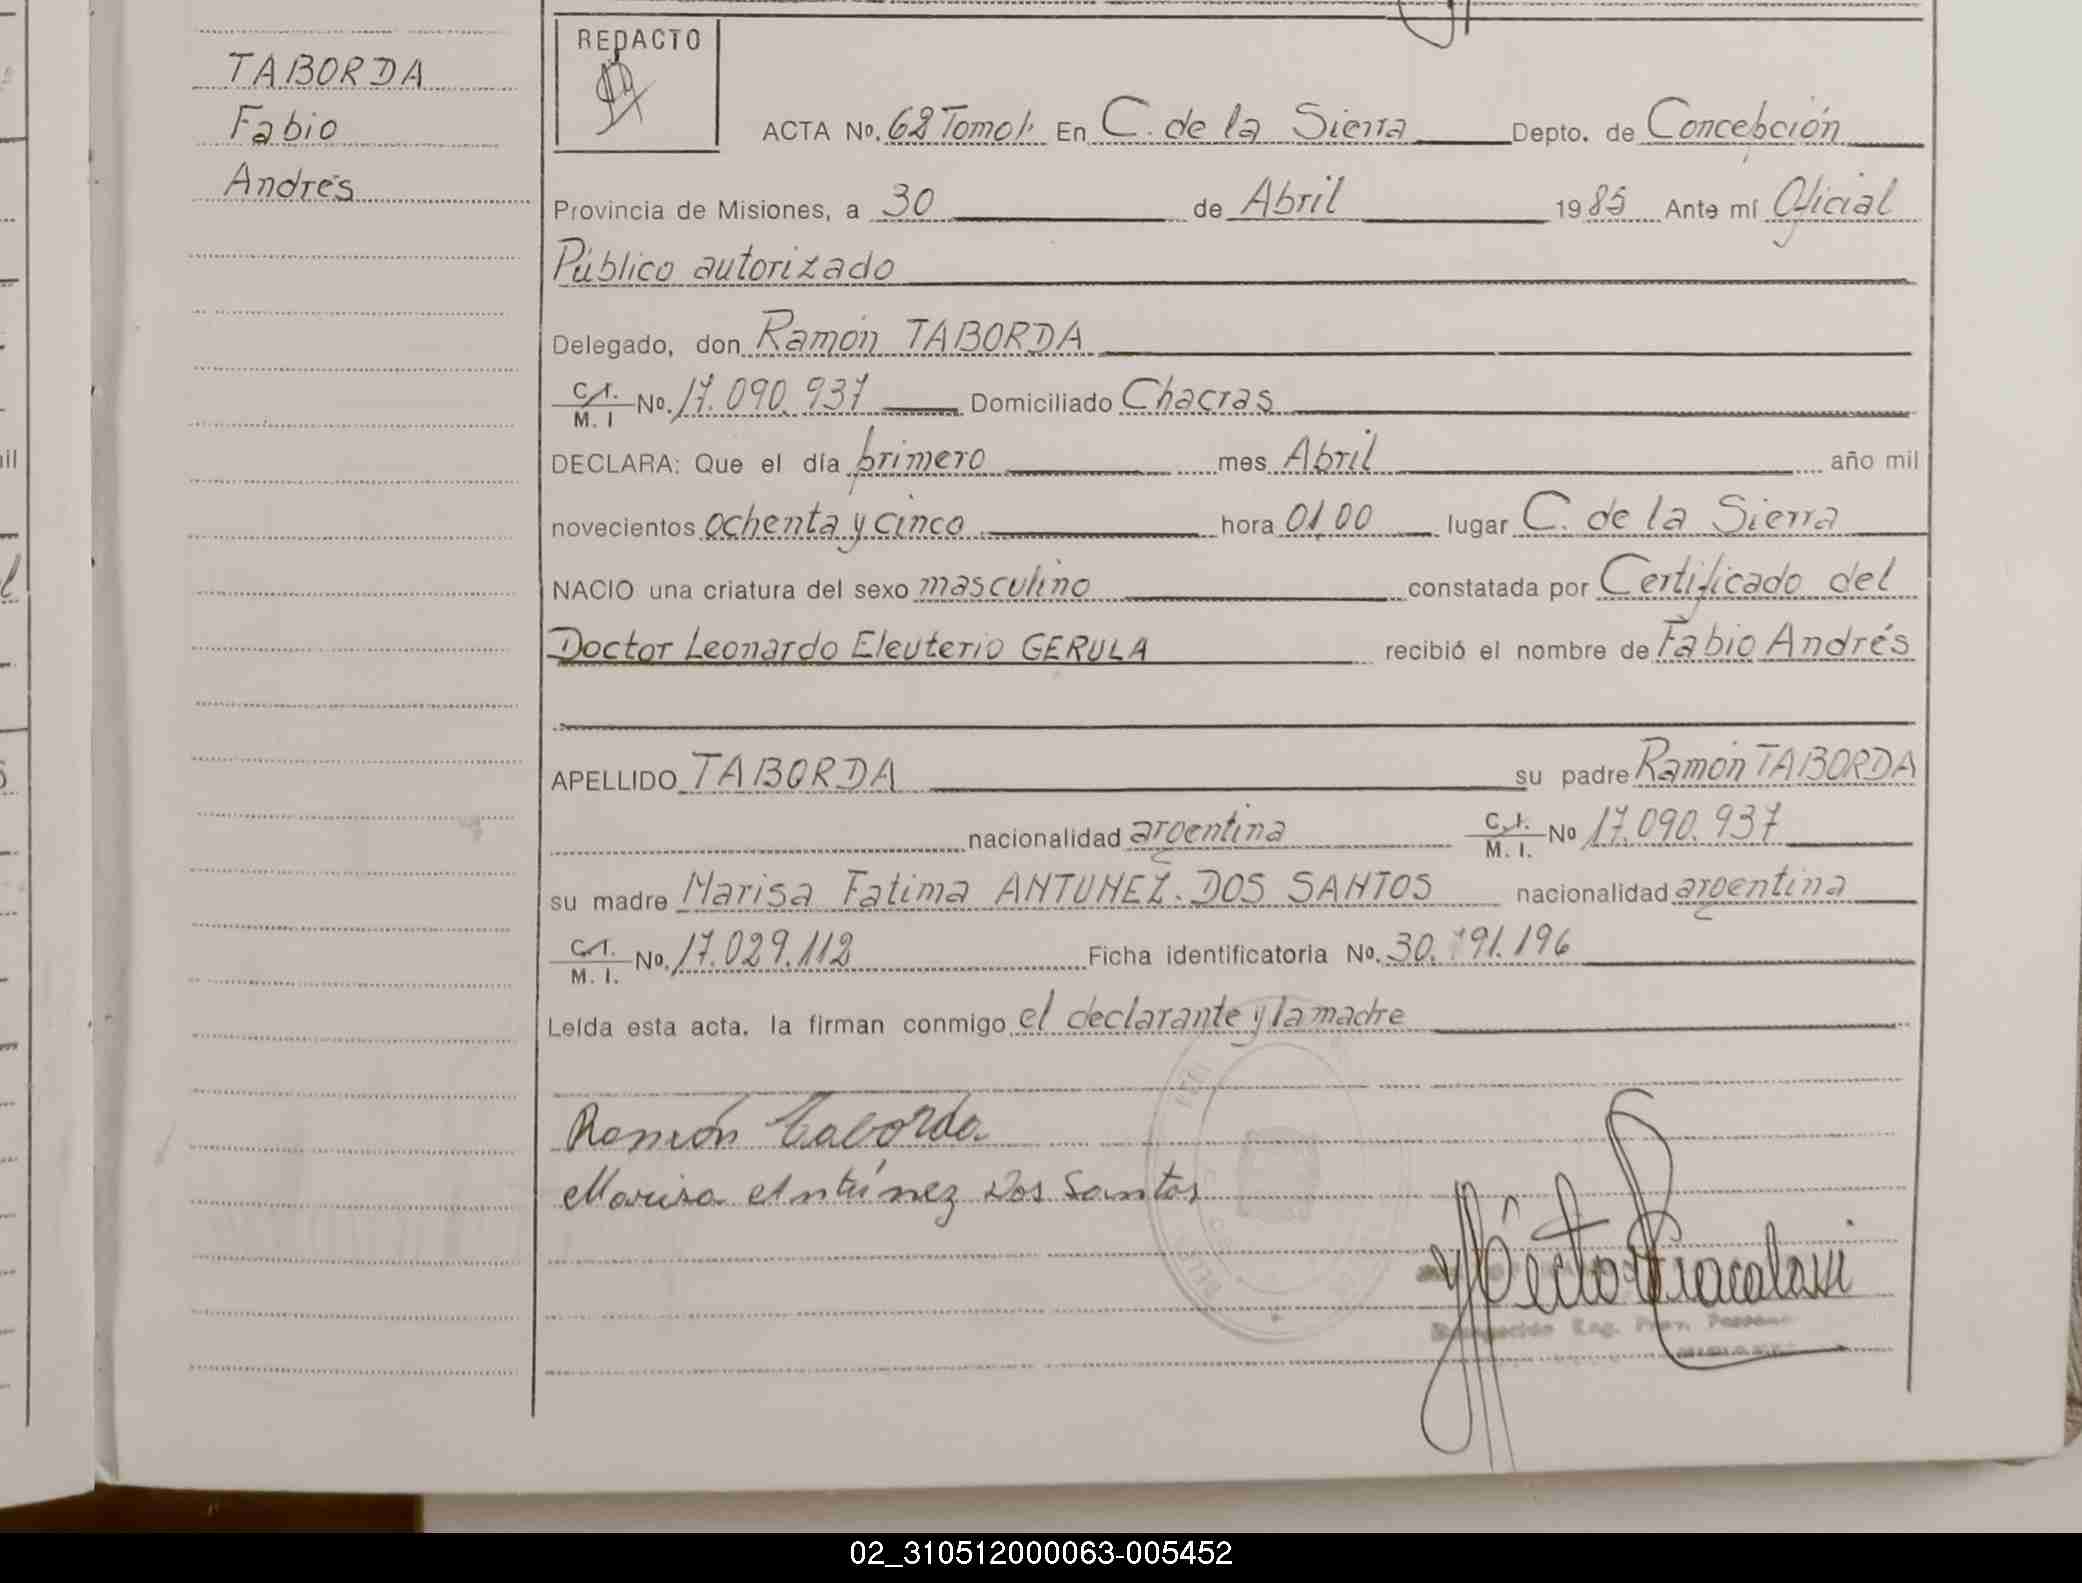 TABORDA
Fabio
Andrés
REDACTO
ACTA No. 62 Tomo I. En C. de la Sierra Depto. de Concepción
Provincia de Misiones, a 30 de Abril 1985 Ante mí Oficial
Público autorizado
Delegado, don Ramón TABORDA
C.I. M. I No. 17.090.937 Domiciliado Chacras
DECLARA: Que el día primero mes Abril año mil
novecientos ochenta y cinco hora 01,00 lugar C. de la Sierra
NACIO una criatura del sexo masculino constatada por Certificado del
Doctor Leonardo Eleuterio GERULA recibió el nombre de Fabio Andrés
APELLIDO TABORDA su padre Ramón TABORDA
nacionalidad argentina C. I. M. I. No 17.090.937
su madre Marisa Fatima ANTUNEZ. DOS SANTOS nacionalidad argentina
C.I. M. I. No. 17.029.112 Ficha identificatoria No. 30. 191.196
Leída esta acta, la firman conmigo el declarante y la madre
Ramón Taborda
Marisa Antúnez Dos Santos
02_310512000063-005452